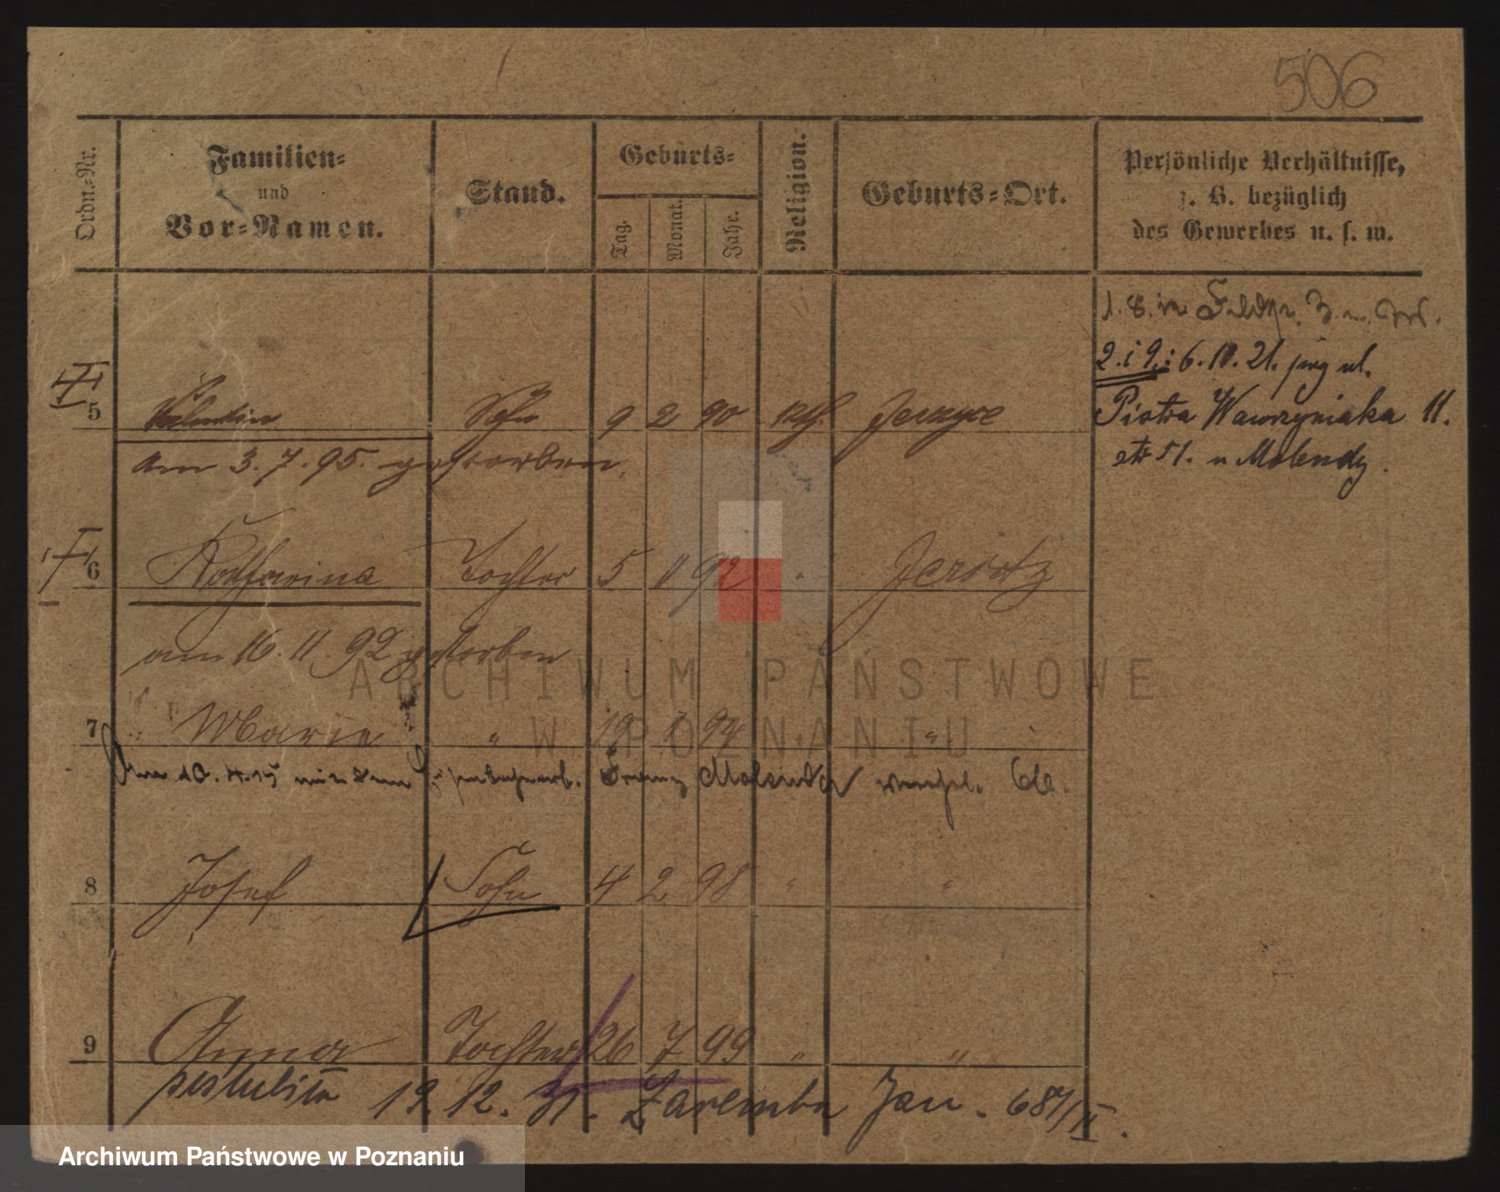 506
Ordn.-Nr.
Familien-
und
Vor-Namen.
Stand.
Geburts-
Tag.
Monat.
Jahr.
Religion.
Geburts-Ort.
Persönliche Verhältnisse,
z. B. bezüglich
des Gewerbes u. s. w.
2. i 9.: 6. 10. 21. ul.
5 Valentin Sohn 9 2 90 kth. Jerzyce
Piotra Wawrzyniaka 11.
am 3. 7. 95. gestorben.
u Molendy.
6 Katharina Tochter 5 11 92 " Jersitz
am 16. 11. 92 gestorben
7 " Marie " 19 1 94 " "
Am 10. 4. 15 mit dem Franz Molenda
8 Josef Sohn 4 2 98 " "
9 Anna Tochter 26 7 99 " "
poślubiła 19. 12. 21. Zaremba Jan. 687/II.
ARCHIWUM PAŃSTWOWE
W POZNANIU
Archiwum Państwowe w Poznaniu